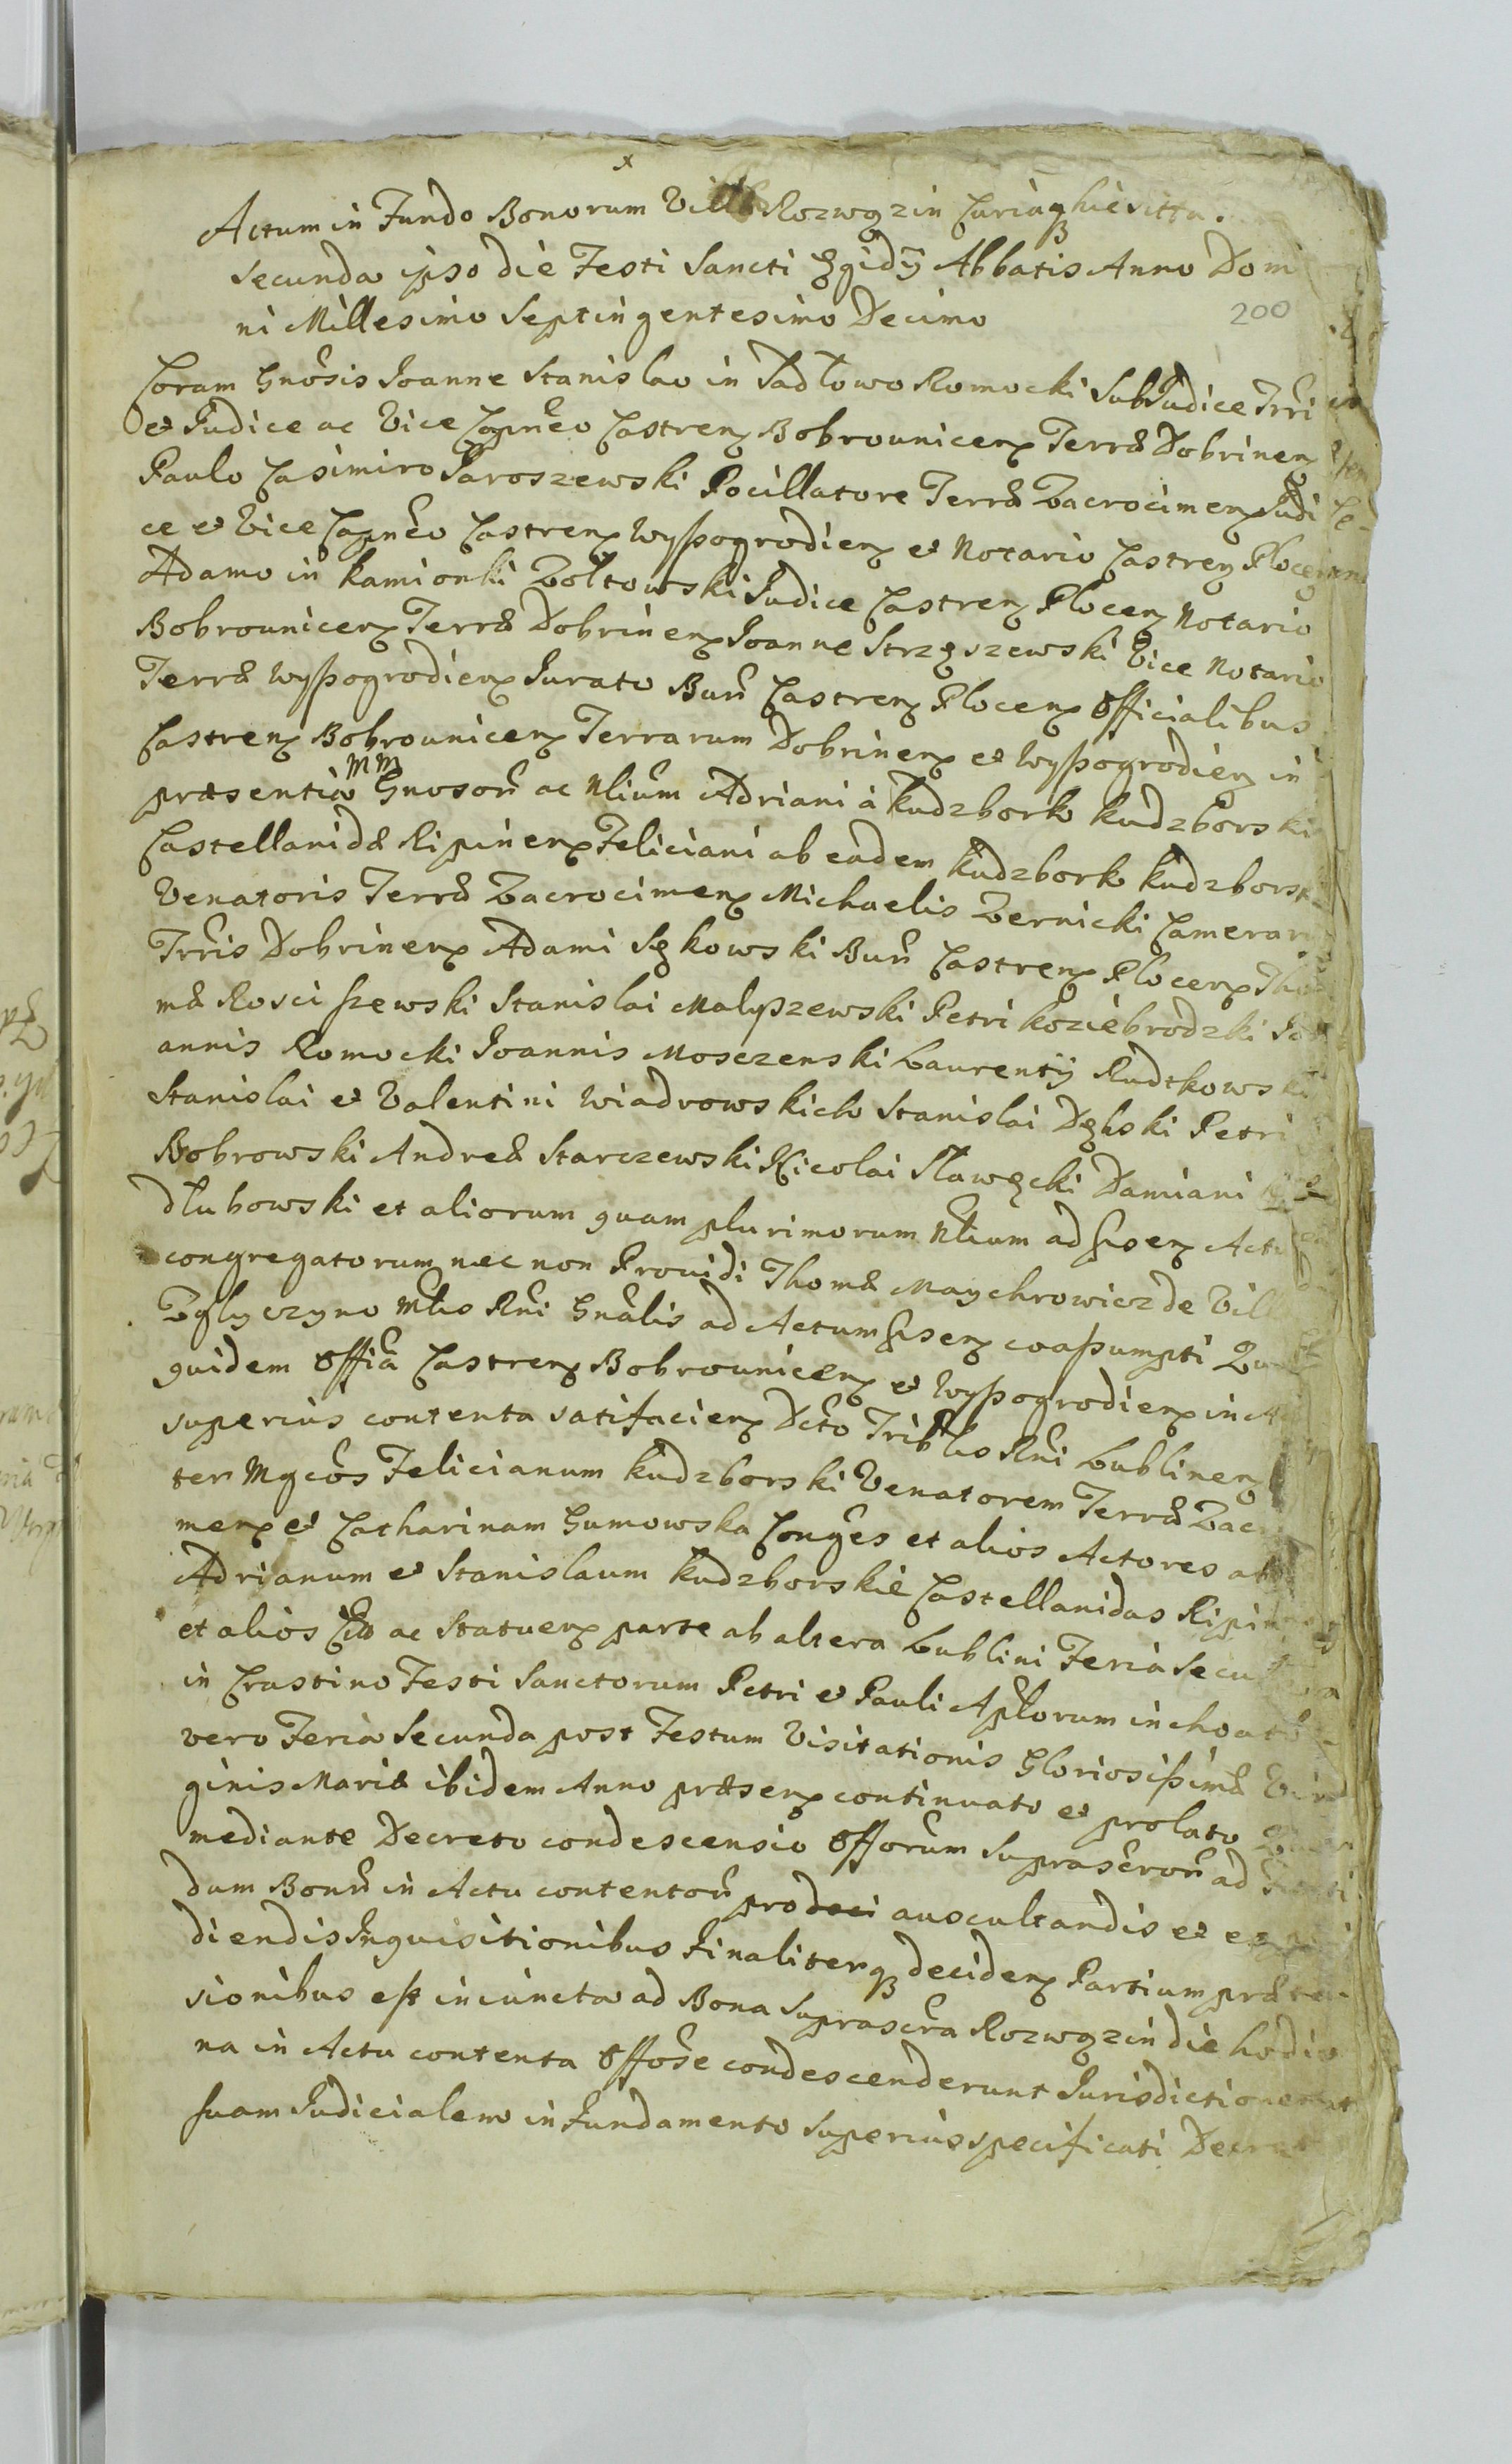 Actum in Fundo Bonorum Villæ Rozwozin Curiaq hic sitta.
Secunda ipso die Festi Sancti Egidij Abbatis Anno Domi
200
ni Millesimo Septingentesimo Decimo
Coram Gnosis Joanne Stanislao in Sadłowo Romocki SubJudice Trri
et Judice ac Vice Capneo Castren Bobrounicen Terræ Dobrinen
Paulo Casimiro Jaroszewski Pocillatore Terræ Zacrocimen Judi
ce et Vice Capneo Castren Wyszogrodien et Notario Castren Plocen
Adamo in Kamionki Zołtowski Judice Castren Plocen Notario
Bobrounicen Terræ Dobrinen Joanne Strzeszewski Vice Notario
Terræ Wyszogrodien Jurato Burr Castren Plocen Officialibus
Castren Bobrounicen Terrarum Dobrinen et Wyszogrodien in
præsentia MM Gnosorr ac Nlium Adriani à Kudzbork Kudzborski
Castellanidæ Ripinen Feliciani ab eadem Kudzbork Kudzborski
Venatoris Terræ Zacrocimen Michaelis Zernicki Camerar
Trris Dobrinen Adami Sękowski Burr Castren Plocen Tho
mæ Rosciszewski Stanislai Malyszewski Petri Koziebrodzki Jo
annis Romocki Joannis Mosczenski Laurentij Rudtkowski
Stanislai et Valentini Wiadrowskich Stanislai Dębski Petri
Bobrowski Andreæ Starczewski Nicolai Sławęcki Damiani
dłubowski et aliorum quam plurimorum Nlium ad prsen Actu
congregatorum nec non Prouidi Thomæ Maychrowicz de Vill
Zglyczyno Mtlis Rni Gnalis ad Actum prsen coassumpti
quidem Offia Castren Bobrounicen et Wyszogrodien in
superius contenta satifacien Dcto Tribtlis Rni Lublinen
ter Mgcos Felicianum Kudzborski Venatorem Terræ Zacr
men et Catharinam Gumowska Conges et alios Actores
Adrianum et Stanislaum Kudzborskie Castellanidas Ripin
et alios Citts ac Statuen parte ab altera Lublini Feria Secu
in Crastino Festi Sanctorum Petri et Pauli Aplorum inchoat
vero Feria Secunda post Festum Visitationis Gloriosissimæ Vir
ginis Mariæ ibidem Anno præsen continuato et prolato
mediante Decreto condescensio Offorum suprascrorr ad
dum Bonrr in Actu contentorr pro auscultandis et
diendis Inquisitionibus Finaliterq deciden Partium præten
sionibus est iniuncta ad Bona suprascra Rozwozin die hodier
na in Actu contenta Offose condescenderunt Jurisdictionem
suam Judicialem in Fundamento superius specificati Decret